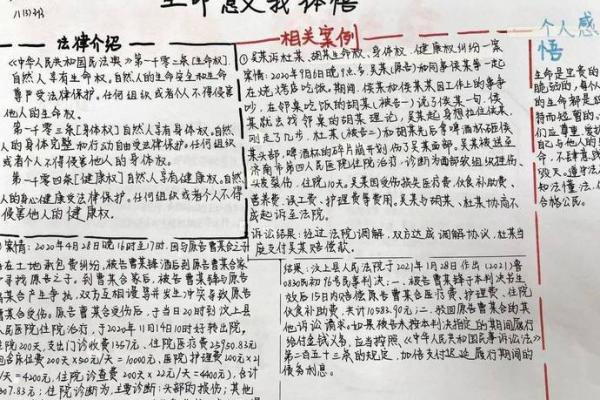 生命意义我体悟
八(3)班
法律介绍
《中华人民共和国民法典》第一千零二条[生命权]
自然人享有生命权。自然人的生命安全和生命
尊严受法律保护。任何组织或者个人不得侵害
他人的生命权。
第一千零三条[身体权]自然人享有身体权。自然
人的身体完整和行动自由受法律保护。任何组织
或者个人不得侵害他人的身体权。
第一千零四条[健康权]自然人享有健康权。自然
人的身心健康受法律保护。任何组织或者个人不得
侵害他人的健康权。
相关案例
①吴某诉杜某、胡某生命权、身体权、健康权纠纷一案
案情:2020年9月6日晚9点多,吴某(原告)和同事侯某等一起
在烧烤店吃饭。期间,侯某和侯某某因工作上的事争
吵,在邻桌吃饭的胡某(被告一)说了侯某一句,侯
某就去找邻桌的胡某理论,吴某起身想拉住侯某,
刚走了几步,杜某(被告二)和胡某先后拿啤酒杯砸侯
某头部,啤酒杯的碎片崩开划伤了吴某面部。吴某被送至
济南市第四人民医院住院治疗,诊断为面部软组织挫伤、
头皮裂伤,住院10天。吴某因受伤损失医疗费、伙食补助费、
营养费、误工费、护理费等费用。吴某与胡某、杜某协商不
成起诉至法院。
诉讼结果:经过法院调解,双方达成调解协议,杜某当
庭支付吴某赔偿款。
个人感
悟
生命是宝贵的
脆弱的,每个人
的生命都是
特而短暂的,
们应尊重
自己与他人的
命,不肆意践
毁灭。遵守法
知法懂法,做
合格公民。
案情:2020年4月28日晚16时至17时,因与原告曹某合之子
在土地承包费纠纷,被告曹某锋酒后到原告曹某合家
寻找原告之子。到曹某合家后,被告曹某锋与原告
曹某合产生争执,双方互相谩骂并发生冲突导致原告
曹某合受伤。原告受伤后,于当日20时到汶上县
人民医院住院治疗,于2020年11月14日10时好转出院。
住院200天,支出门诊收费1357元,住院医疗费25750.83元
伙食住费200天×50元/天=10000元、医院护理费200天×21
/天=4200元,住院诊查费200天×22元/天=4400元),合计
107.83元;住院诊断为,主要诊断:头部的损伤;其他
结果:汶上县人民法院于2021年1月28日作出(2021)鲁
0830民初96号民事判决:一、被告曹某锋于本判决书生
效后15日内赔偿原告曹某合医疗费、护理费、住院
伙食补助费,共计10583.90元;二、驳回原告曹某合的其
他诉讼请求。如果被告未按本判决指定的期间履行
给付金钱义务,应当按照《中华人民共和国民事诉讼法》
第二百五十三条的规定,加倍支付迟延履行期间的
债务利息。